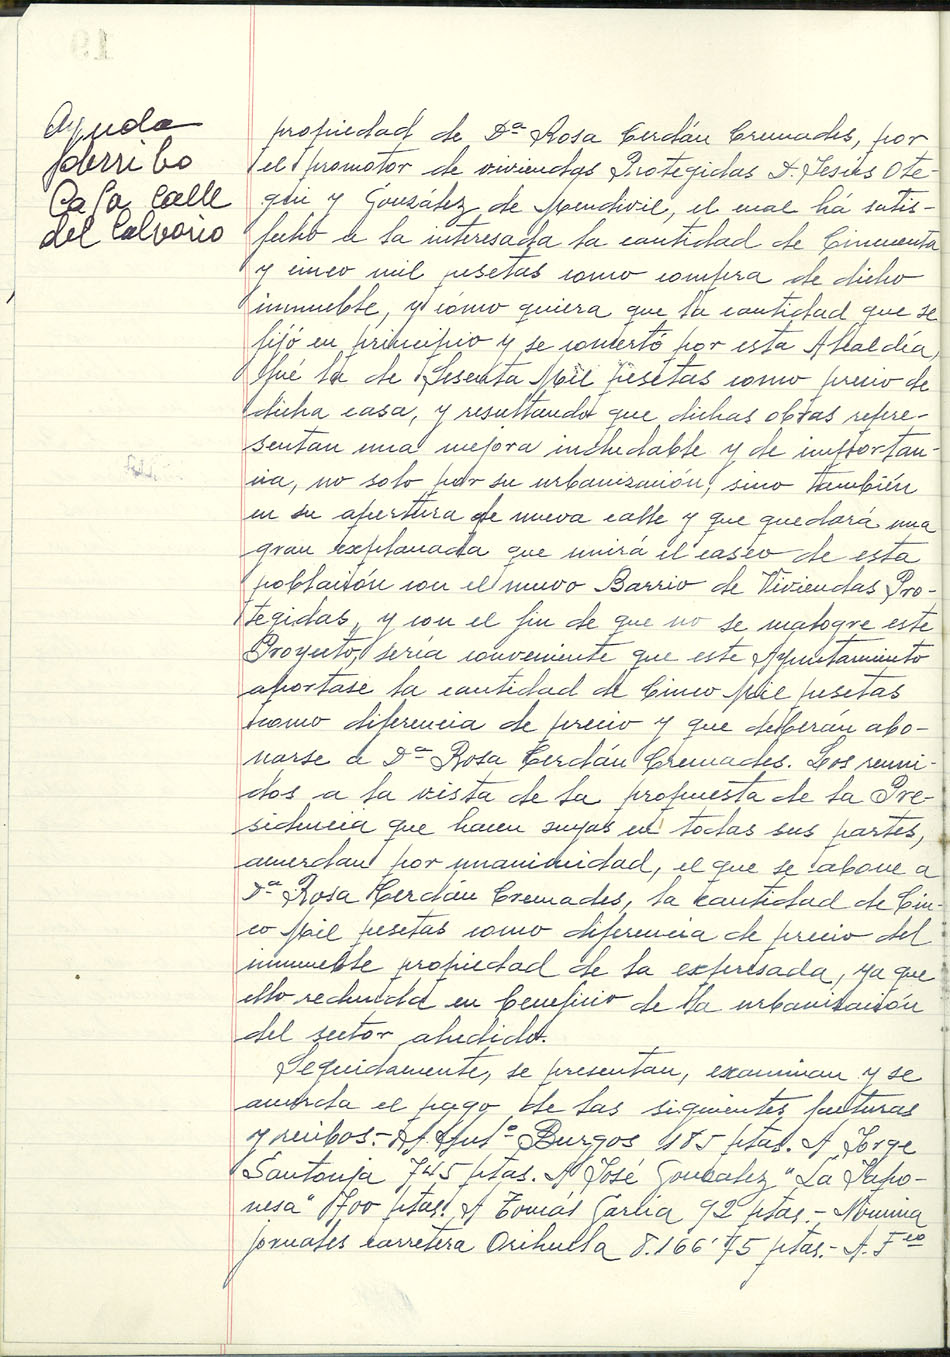 Ayuda
derribo
Casa calle
del Calvario
propiedad de Dª Rosa Cerdán Cremades, por
el promotor de viviendas Protegidas D. Jesús Ote-
gui y González de Mendivil, el cual há satis-
fecho a la interesada la cantidad de Cincuenta
y cinco mil pesetas como compra de dicho
inmueble, y cómo quiera que la cantidad que se
fijó en principio y se concertó por esta Alcaldía,
fué la de Sesenta Mil pesetas como precio de
dicha casa, y resultando que dichas obras repre-
sentan una mejora indudable y de importan-
cia, no solo por su urbanización, sino también
en su apertura de nueva calle y que quedará una
gran explanada que unirá el casco de esta
población con el nuevo Barrio de Viviendas Pro-
tegidas, y con el fin de que no se malogre este
Proyecto, sería conveniente que este Ayuntamiento
aportase la cantidad de Cinco Mil pesetas
como diferencia de precio y que deberán abo-
narse a Dª Rosa Cerdán Cremades. Los reuni-
dos a la vista de la propuesta de la Pre-
sidencia que hacen suyas en todas sus partes,
acuerdan por unanimidad, el que se abone a
Dª Rosa Cerdán Cremades, la cantidad de Cin-
co Mil pesetas como diferencia de precio del
inmueble propiedad de la expresada, ya que
ello redunda en beneficio de la urbanización
del sector aludido.
Seguidamente, se presentan, examinan y se
acuerda el pago de las siguientes facturas
y recibos.- A Antº Burgos 185 ptas. A Jorge
Santonja 745 ptas. A José González "La Japo-
nesa" 700 ptas. A Tomás García 92 ptas.- Nómina
jornales carretera Orihuela 8.166'75 ptas.- A. Fco